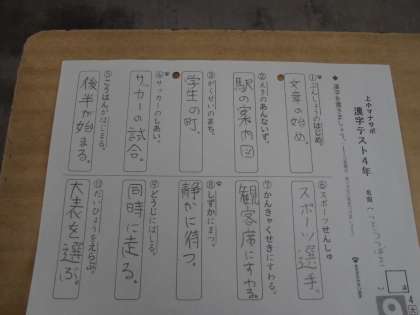 上中マナサポ
漢字テスト4年
名前
◆漢字を書きましょう。
①ぶんしょうのはじめ。
文章の始め。
②えきのあんないず。
駅の案内図
③がくせいのまち。
学生の町。
④サッカーのしあい。
サッカーの試合。
⑤こうはんがはじまる。
後半が始まる。
⑥スポーツせんしゅ。
スポーツ選手。
⑦かんきゃくせきにすわる。
観客席にすわる。
⑧しずかにまつ。
静かに待つ。
⑨どうじにはしる。
同時に走る。
⑩だいひょうをえらぶ。
大表を選ぶ。